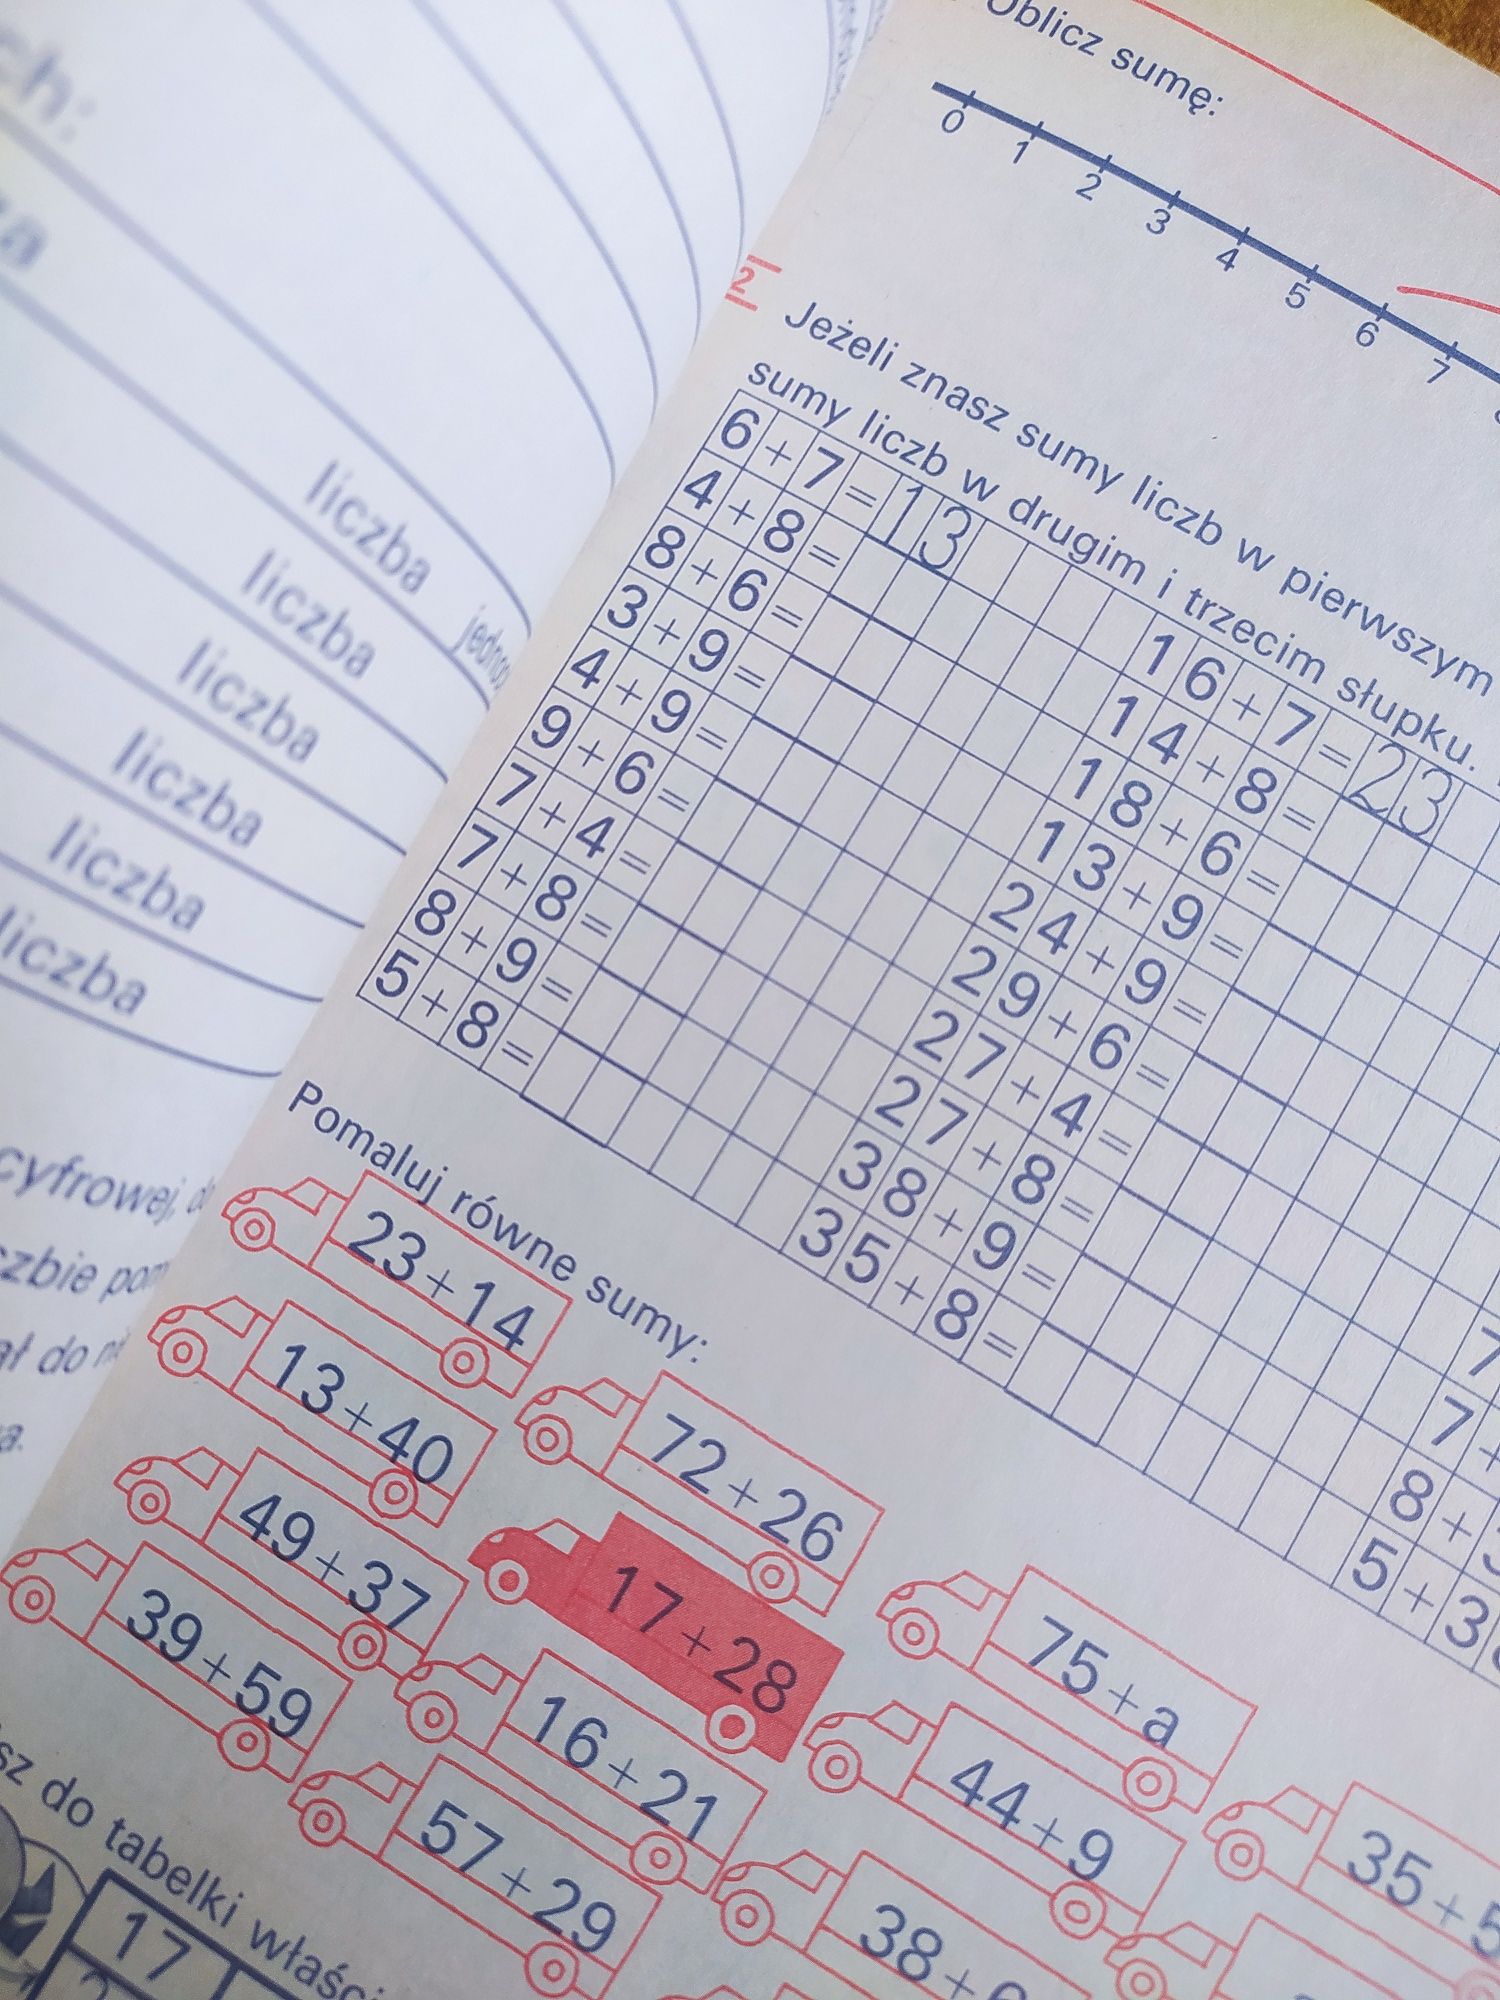 ch:
za
liczba
liczba
liczba
liczba
liczba
liczba
cyfrowej,
zbie
do
Oblicz sumę:
0 1 2 3 4 5 6 7
2
Jeżeli znasz sumy liczb w pierwszym
sumy liczb w drugim i trzecim słupku.
6+7=13 16+7=23
4+8= 14+8=
8+6= 18+6=
3+9= 13+9=
4+9= 24+9=
9+6= 29+6=
7+4= 27+4=
7+8= 27+8=
8+9= 38+9=
5+8= 35+8=
7
7+
8+
5+3
Pomaluj równe sumy:
23+14
13+40
72+26
49+37
17+28
75+a
39+59
16+21
44+9
35+5
57+29
38+
do tabelki
17